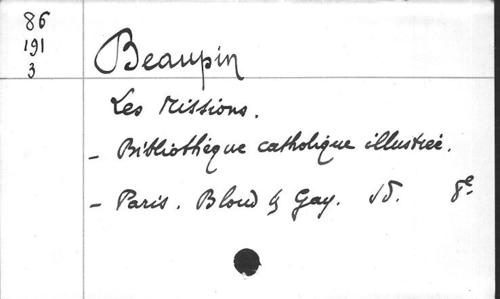 86
191
3
Beaupin
Les Missions.
- Bibliothèque catholique illustrée.
- Paris. Bloud & Gay. sd. 8e